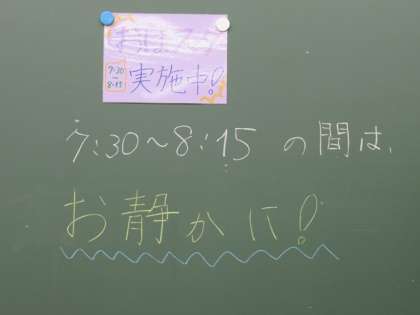 7:30
〜
8:15
実施中!
7:30〜8:15の間は、
お静かに!